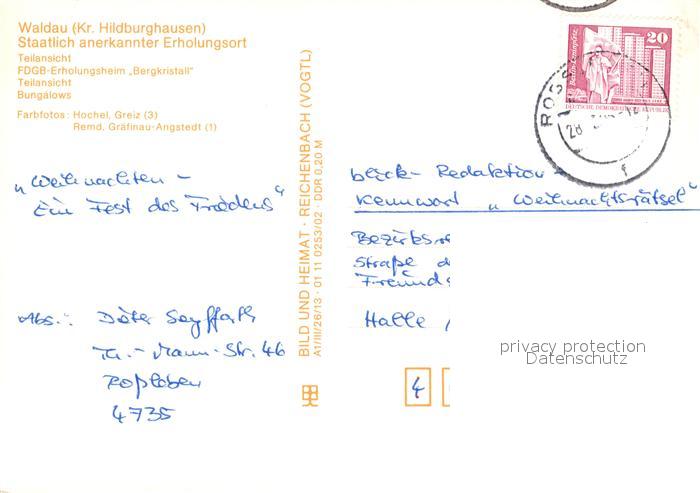 Waldau (Kr. Hildburghausen)
Staatlich anerkannter Erholungsort
Teilansicht
FDGB-Erholungsheim „Bergkristall"
Teilansicht
Bungalows
Farbfotos: Hochel, Greiz (3)
Remd. Gräfinau-Angstedt (1)
„Weihnachten –
Ein Fest des Friedens"
Abs.: Dieter Seyffarth
Th.-Mann-Str. 46
Roßleben
4735
BILD UND HEIMAT · REICHENBACH (VOGTL)
A1/III/26/13 · 01 11 0253/02 · DDR 0,20 M
20
DEUTSCHE DEMOKRATISCHE REPUBLIK
ROSS
28
blick-Redaktion
Kennwort „Weihnachtsrätsel"
Bezirks
Straße d
Freunds
Halle /
4
privacy protection
Datenschutz